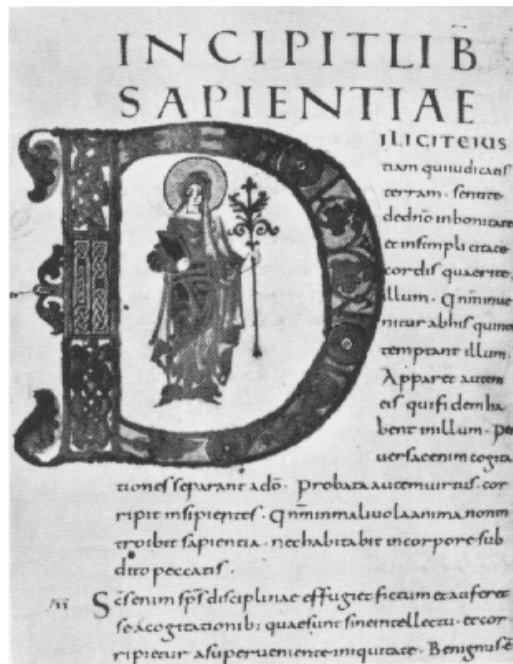 INCIPITLIB̅
SAPIENTIAE
DILIGITEIUS
tiam quiiudicatis
terram · sentite
dedn̅o inbonitate
et insimplicitate
cordis quaerite
illum · Qn̅m inue
nitur abhis quinon
temptant illum ·
Apparet autem
eis quifidem ha
bent inillum · Per
uersae enim cogita
tiones separant adō · Probata autem uirtus · cor
ripit insipientes · Qn̅m inmaliuola anima nonin
troibit sapientia · nec habitabit incorpore sub
dito peccatis ·
Sc̅s enim sp̅s disciplinae effugiet fictum et auferet
se a cogitationib: quae sunt sine intellectu · et cor
ripietur a superueniente iniquitate · Benignus ē